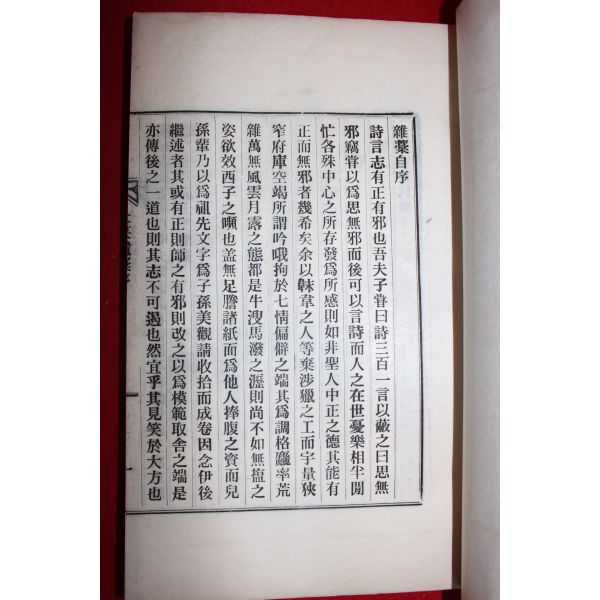 雜藁自序
詩言志有正有邪也吾夫子嘗曰詩三百一言以蔽之曰思無
邪竊嘗以爲思無邪而後可以言詩而人之在世憂樂相半閒
忙各殊中心之所存發爲所感則如非聖人中正之德其能有
正而無邪者幾希矣余以韎韋之人等棄涉獵之工而宇量狹
窄府庫空竭所謂吟哦拘於七情偏僻之端其爲調格麤率荒
雜萬無風雲月露之態都是牛溲馬潑之瀝則尚不如無塩之
姿欲效西子之嚬也盖無足謄諸紙而爲他人捧腹之資而兒
孫輩乃以爲祖先文字爲子孫美觀請收拾而成卷因念伊後
繼述者其或有正則師之有邪則改之以爲模範取舍之端是
亦傳後之一道也則其志不可遏也然宜乎其見笑於大方也